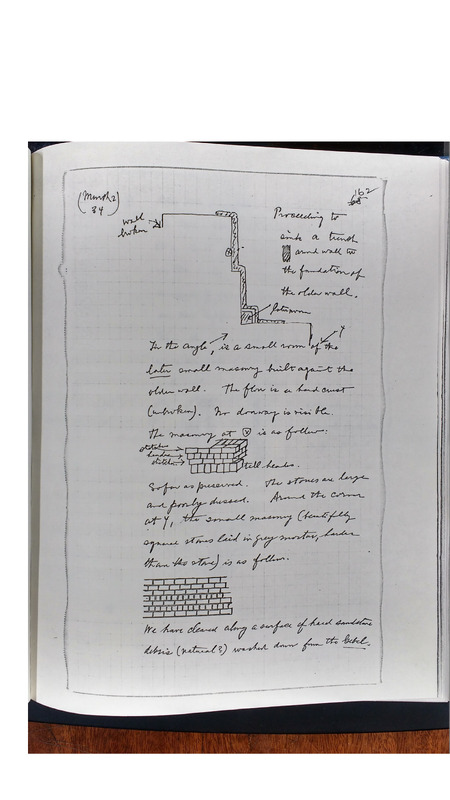 (March 2)
34
162
wall
broken
Proceeding to
sink a trench
around wall to
the foundation of
the older wall.
later room
x
Y
In the angle, is a small room of the
later small masonry built against the
older wall. The floor is a hard crust
(unbroken). No doorway is visible.
The masonry at x is as follows:
stretchers
headers
stretchers
tell-heads.
So far as preserved. The stones are large
and poorly dressed. Around the corner
at Y, the small masonry (beautifully
square stones laid in grey mortar, harder
than the stone) is as follows.
We have cleared along a surface of hard sandstone
debris (natural?) washed down from the Gebel.